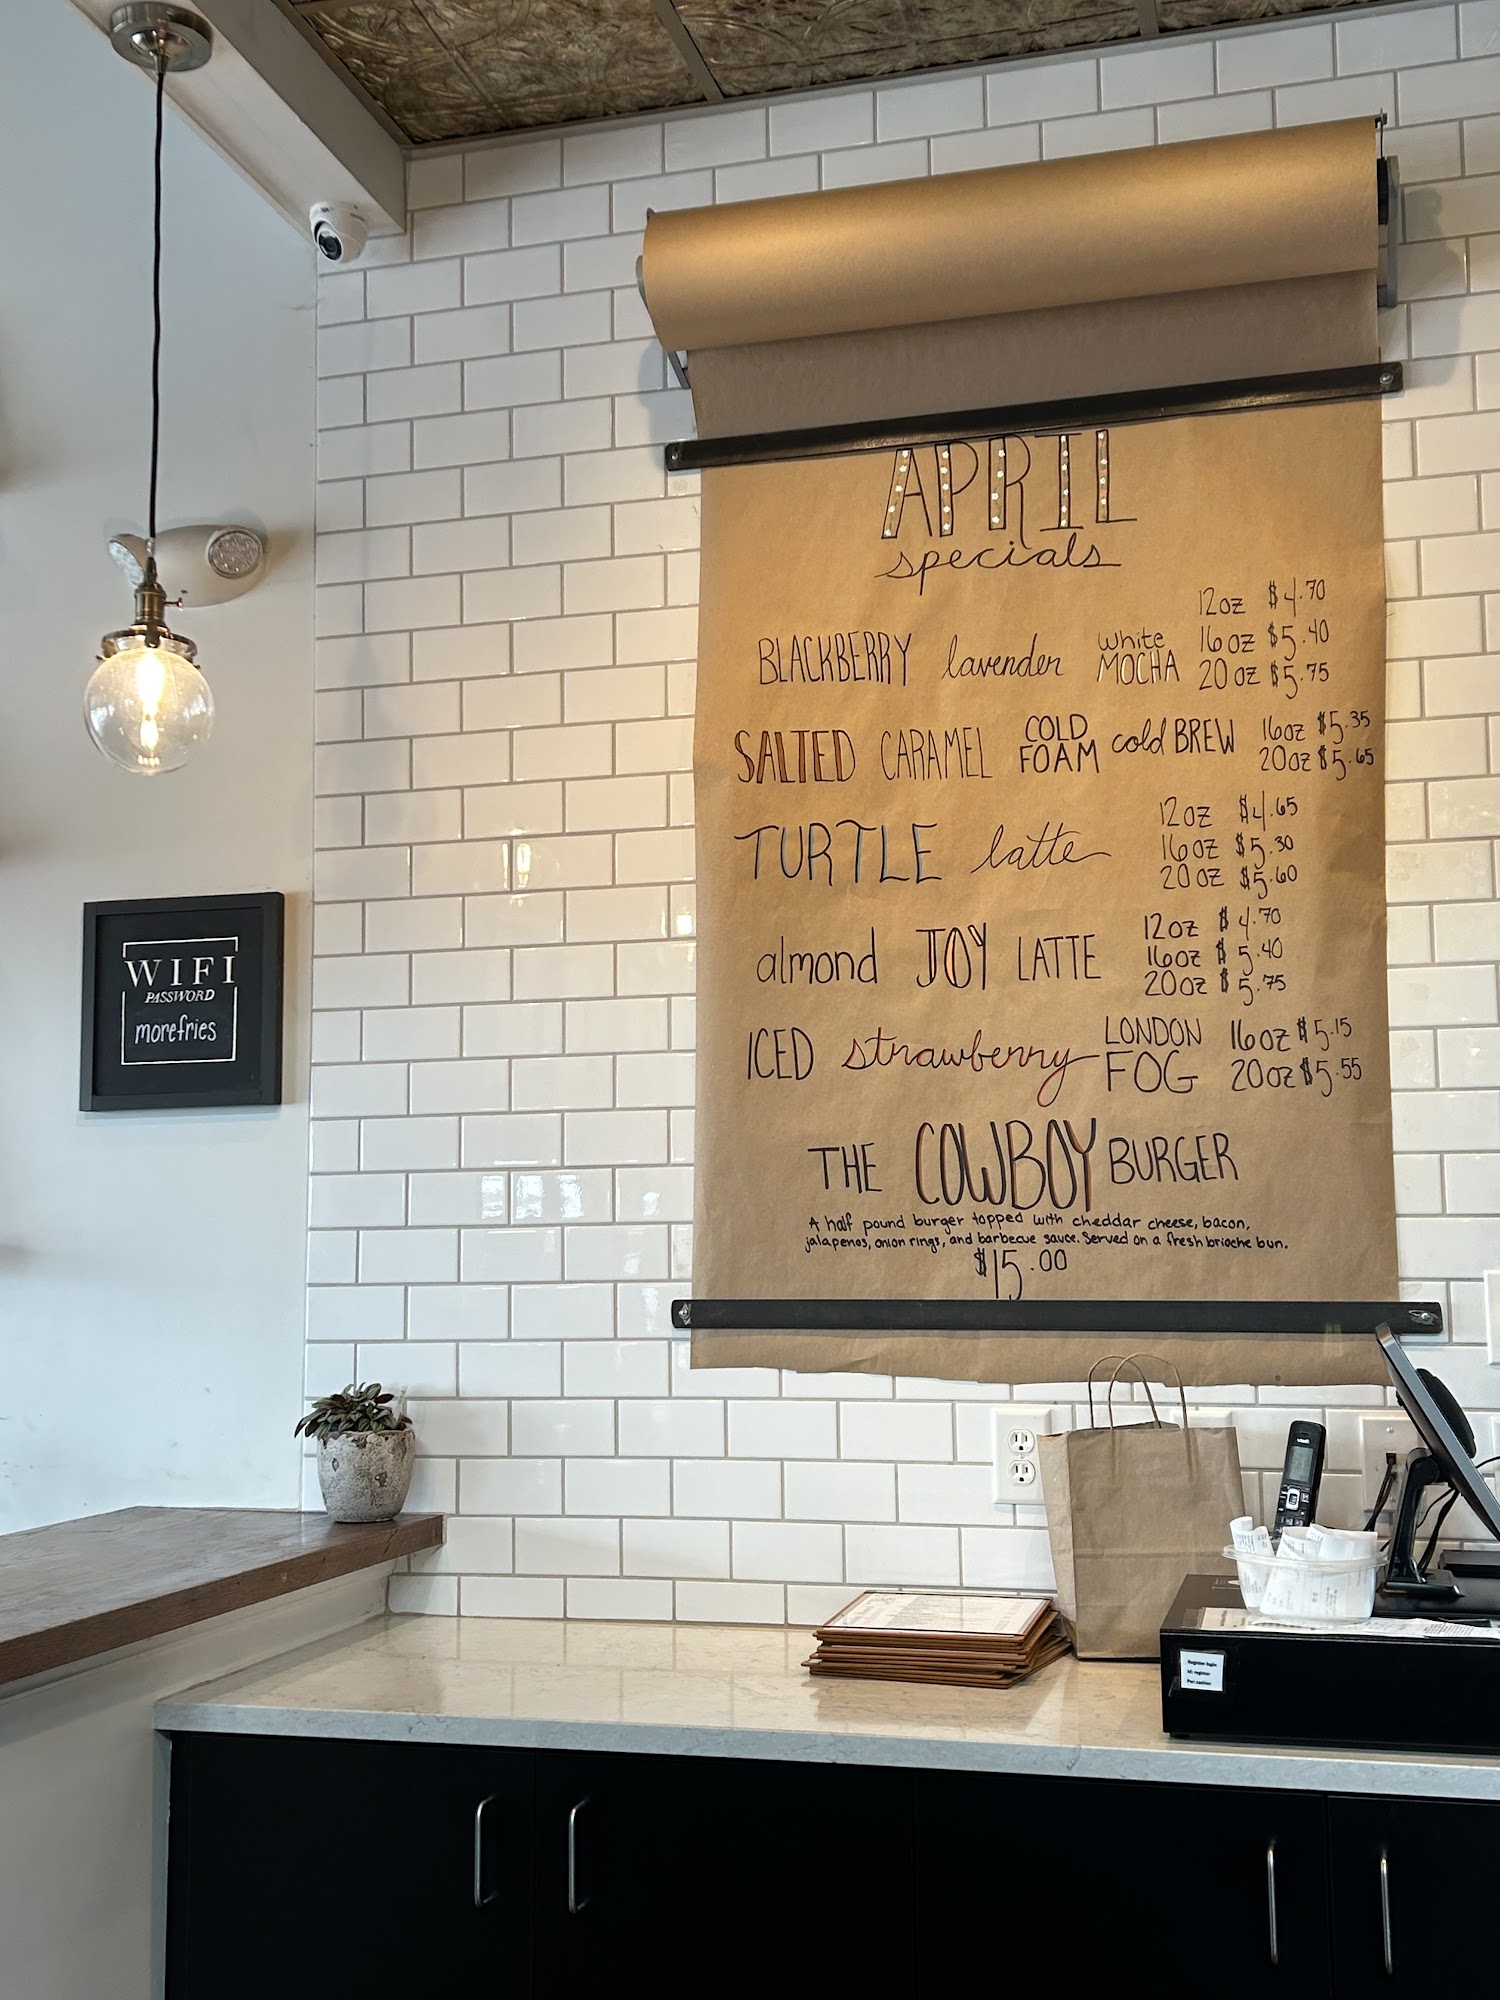 APRIL
specials
BLACKBERRY lavender white MOCHA
12oz $4.70
16oz $5.40
20oz $5.75
SALTED CARAMEL COLD FOAM cold BREW
16oz $5.35
20oz $5.65
TURTLE latte
12oz $4.65
16oz $5.30
20oz $5.60
almond JOY LATTE
12oz $4.70
16oz $5.40
20oz $5.75
ICED strawberry LONDON FOG
16oz $5.15
20oz $5.55
THE COWBOY BURGER
A half pound burger topped with cheddar cheese, bacon,
jalapenos, onion rings, and barbecue sauce. Served on a fresh brioche bun.
$15.00
WIFI
PASSWORD
morefries
Register login
Id: register